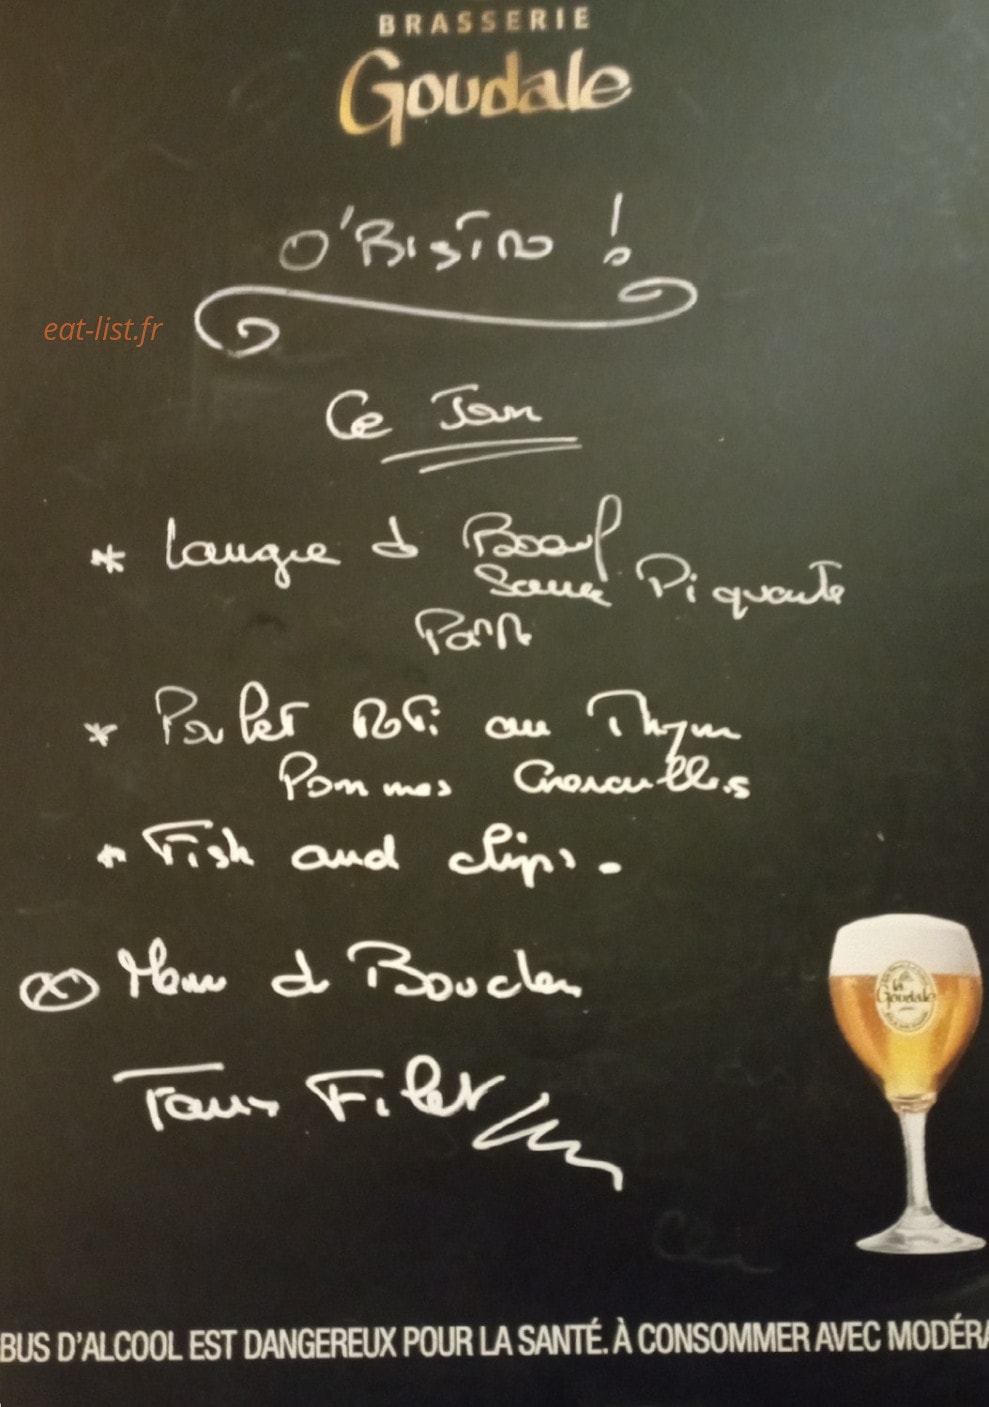 BRASSERIE
Goudale
O'Bistro !
eat-list.fr
Ce Jour
* Langue de Boeuf
Sauce Piquante
* Poulet Roti au Thym
Pommes Grenailles
* Fish and chips.
de Boucher
Filet
la
Goudale
BUS D'ALCOOL EST DANGEREUX POUR LA SANTÉ. À CONSOMMER AVEC MODÉRA